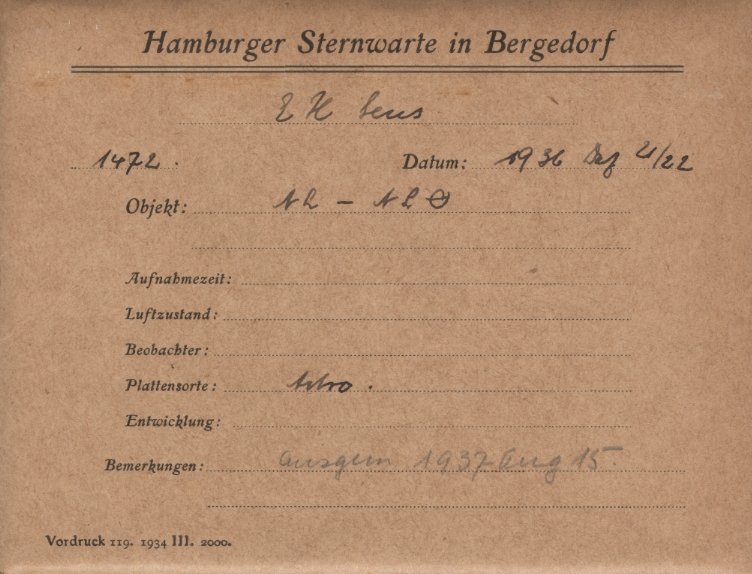 Hamburger Sternwarte in Bergedorf
1472. Datum: 1936 Dez 21/22
Objekt:
Aufnahmezeit:
Luftzustand:
Beobachter:
Plattensorte: Astro.
Entwicklung:
Bemerkungen: ausgem 1937 Aug 15.
Vordruck 119. 1934 III. 2000.